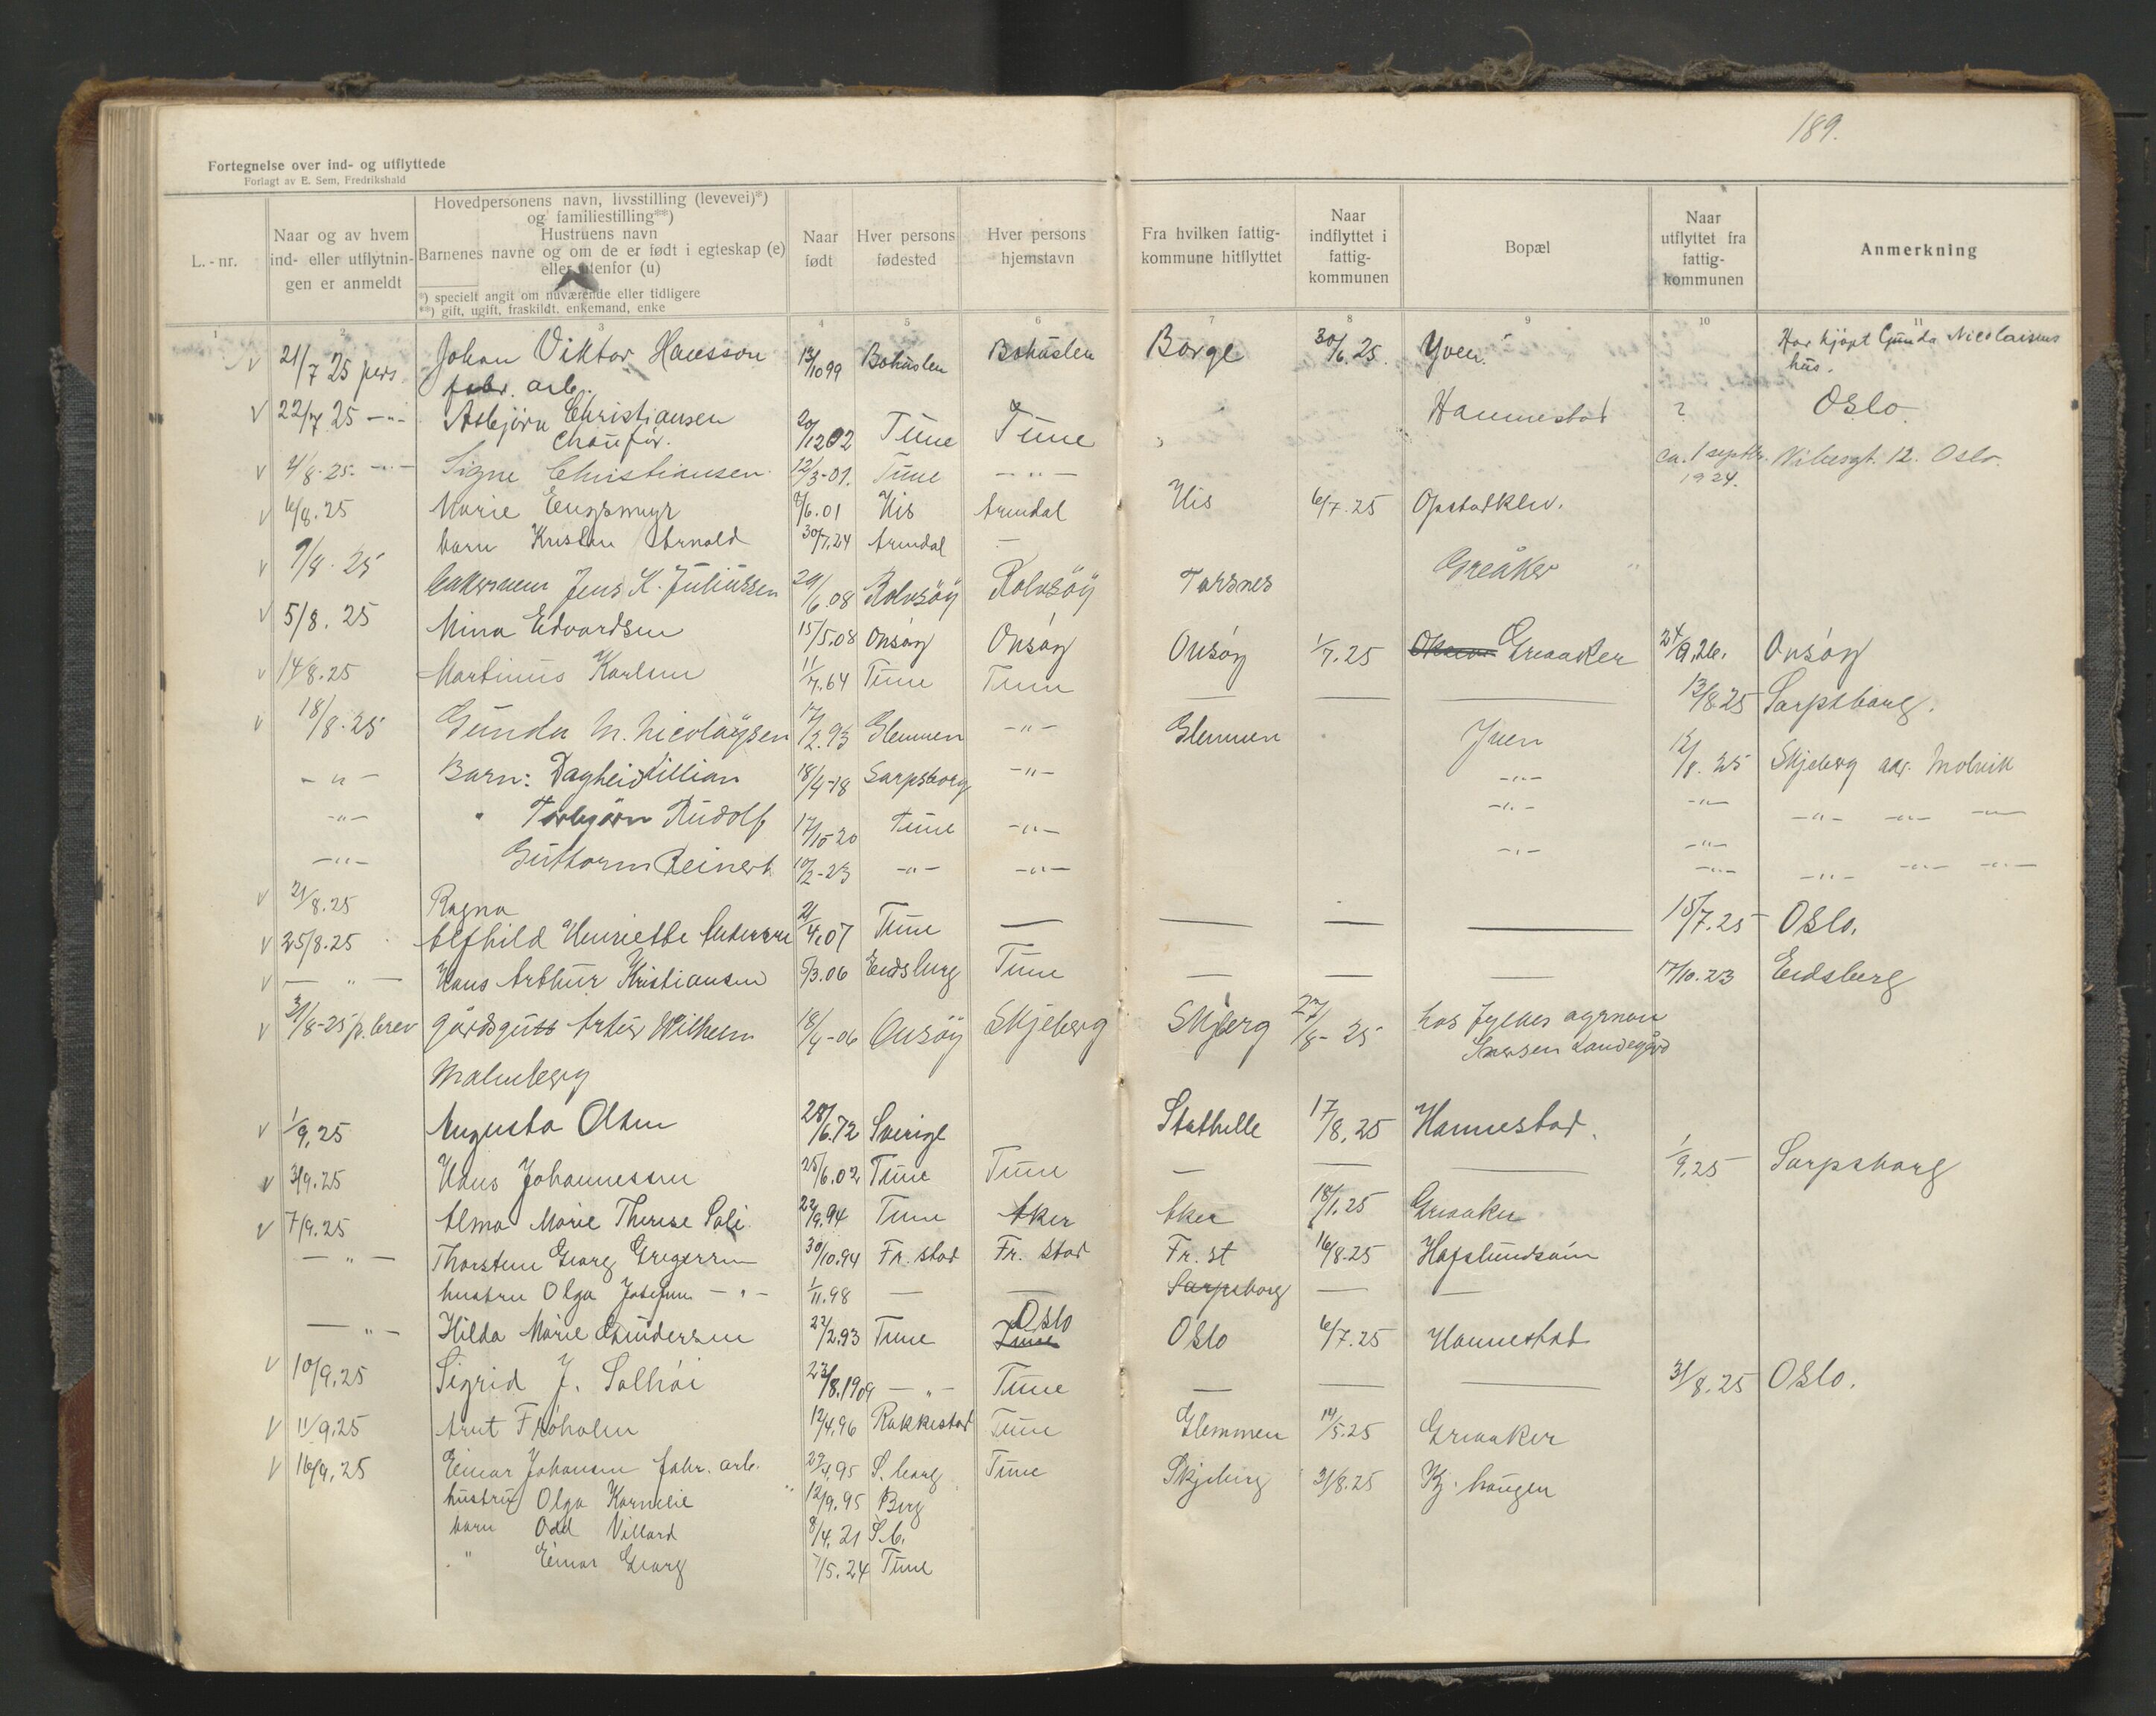 189.
Fortegnelse over ind- og utflyttede
Forlagt av E. Sem, Fredrikshald
L.-nr.
Naar og av hvem ind- eller utflytningen er anmeldt
Hovedpersonens navn, livsstilling (levevei)*)
og familiestilling**)
Hustruens navn
Barnenes navne og om de er født i egteskap (e)
eller utenfor (u)
*) specielt angit om nuværende eller tidligere
**) gift, ugift, fraskildt, enkemand, enke
Naar født
Hver persons fødested
Hver persons hjemstavn
Fra hvilken fattigkommune hitflyttet
Naar indflyttet i fattigkommunen
Bopæl
Naar utflyttet fra fattigkommunen
Anmerkning
1 2 3 4 5 6 7 8 9 10 11
v 21/7 25 pers Johan Viktor Hansson 13/10 99 Bohuslen Bohuslen Borge 30/6.25. Yven. Har kjöpt Gunda Nicolaisens
fabr. arb. hus.
v 22/7 25 -"- Asbjörn Christiansen 20/12 02 Tune Tune Hannestad ? Oslo
Chauför.
v 4/8-25. -"- Signe Christiansen. 12/3-01. Tune -"- ca. 1 septbr. 12. Oslo.
1924.
v 6/8.25 Marie 8/6.01 His Arendal His 6/7.25
barn Kristen Arnold 30/7.24 Arendal -
v 7/8.25 Jens K. Juliussen 29/6.08 Rolvsöy Rolvsöy Torsnes Greåker
v 5/8.25 Mina Edvardsen 15/5.08 Onsöy Onsöy Onsöy 1/7.25 Greaaker 24/9.26. Onsöy
v 14/8.25 Martinus Karlsen 11/7.64 Tune Tune 13/8 25 Sarpsborg.
v 18/8-25 Gunda M. Nicolaysen 17/2.93 Glemmen -"- Glemmen Yven 12/8.25 Skjeberg adr. Molvik
-"- Barn: Dagheid Lillian 18/4-18 Sarpsborg -"- -"- -"- -"- -"- -"-
-"- " Torbjörn Rudolf 17/10-20 Tune -"- -"- -"- -"- -"- -"-
-"- Guttorm Reinert 10/2-23 -"- -"- -"- -"- -"- -"- -"-
v 21/8.25 Ragna
v 25/8.25 Alfhild Henriette Andersen 21/4.07 Tune — — — — 15/7.25 Oslo.
v — " — Hans Arthur Kristiansen 5/3.06 Eidsberg Tune — — — 17/10.23 Eidsberg
v 31/8-25 p. brev gårdsgutt Artur Wilhelm 18/4-06 Onsöy Skjeberg Skjberg 27/8-25 hos fylkes agronom
Malmberg Landegård
v 1/9.25 Augusta Olsen 28/6.72 Sverige Stathelle 17/8.25 Hannestad.
v 3/9.25 Hans Johannessen 25/6.02 Tune Tune — — — 1/9.25 Sarpsborg
v 7/9.25 Alma Marie Therese Soli 22/9.94 Tune Aker Aker 18/1.25 Greaaker
— " — Thorsten Georg Gregersen 30/10.94 Fr. stad Fr. Stad Fr. st 16/8.25 Hafslundsöen
hustru Olga Josefine — " — 1/11.98 — — Sarpsborg — —
— " — Hilda Marie Gundersen 22/2.93 Tune Tune Oslo Oslo 6/7.25 Hannestad
v 10/9.25 Sigrid J. Solhöi 23/8.1909 — " — Tune — — — 31/8.25 Oslo.
v 11/9.25 Arnt Fröholm 12/4.96 Rakkestad Tune Glemmen 14/5.25 Greaaker
v 16/9.25 Einar Johansen fabr. arb. 29/4.95 S. borg Tune Skjeberg 31/8.25 Kj. haugen
hustru Olga Kornelie 12/9.95 Berg
barn Odd Villard 8/4.21 S.b.
" Einar Georg 7/5.24 Tune